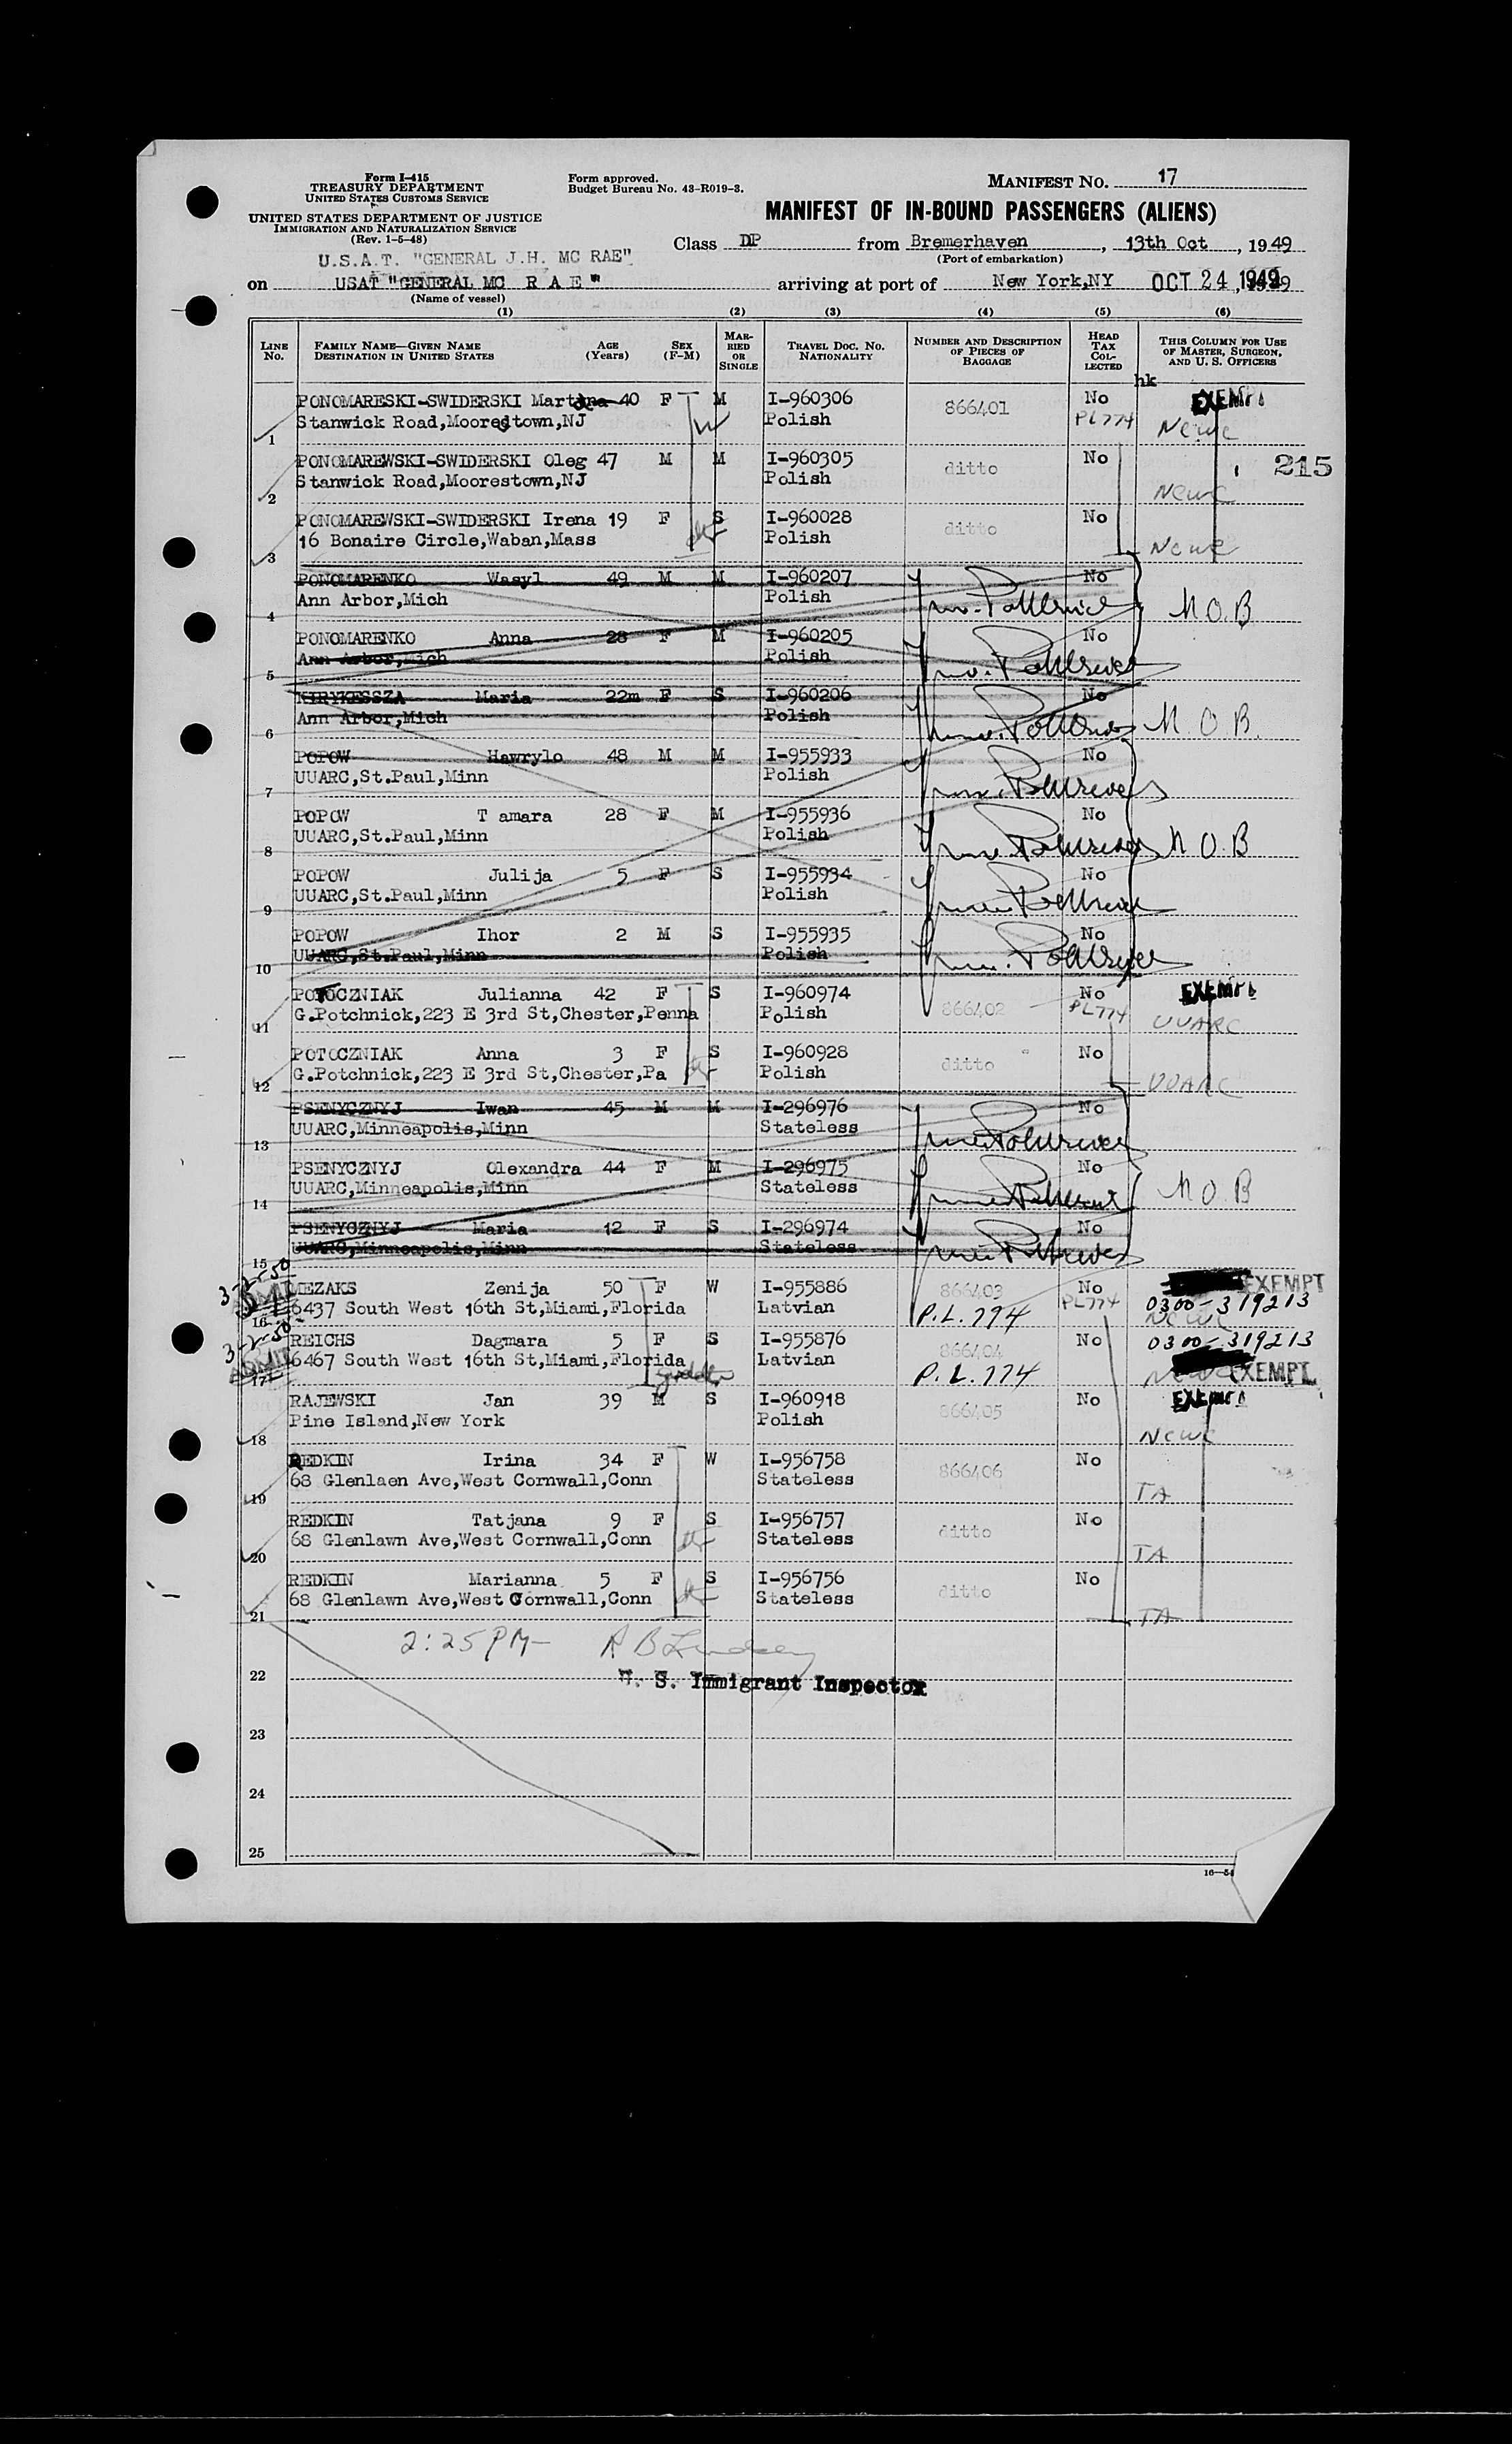 Form I-415
TREASURY DEPARTMENT
UNITED STATES CUSTOMS SERVICE
UNITED STATES DEPARTMENT OF JUSTICE
IMMIGRATION AND NATURALIZATION SERVICE
(Rev. 1-5-48)
Form approved.
Budget Bureau No. 43-R019-3.
MANIFEST NO. 17
MANIFEST OF IN-BOUND PASSENGERS (ALIENS)
Class DP from Bremerhaven, 13th Oct, 1949
(Port of embarkation)
U.S.A.T. "GENERAL J.H. MC RAE"
on USAT "GENERAL MC R A E" arriving at port of New York,NY OCT 24, 1949
(Name of vessel)
(1) (2) (3) (4) (5) (6)
LINE NO. FAMILY NAME—GIVEN NAME DESTINATION IN UNITED STATES AGE (Years) SEX (F-M) MARRIED OR SINGLE TRAVEL DOC. NO. NATIONALITY NUMBER AND DESCRIPTION OF PIECES OF BAGGAGE HEAD TAX COLLECTED THIS COLUMN FOR USE OF MASTER, SURGEON, AND U. S. OFFICERS
hk
PONOMARESKI-SWIDERSKI Martyna 40 F M I-960306 866401 No EXEMPT
1 Stanwick Road,Moorestown,NJ Polish PL774 NCWC
PONOMAREWSKI-SWIDERSKI Oleg 47 M M I-960305 ditto No 215
2 Stanwick Road,Moorestown,NJ Polish NCWC
PONOMAREWSKI-SWIDERSKI Irena 19 F S I-960028 ditto No
3 16 Bonaire Circle,Waban,Mass Polish NCWC
PONOMARENKO Wasyl 49 M M I-960207 No
4 Ann Arbor,Mich Polish N.O.B
PONOMARENKO Anna 28 F M I-960205 No
5 Ann Arbor,Mich Polish
KIRYKESSZA Maria 22m F S I-960206 No
6 Ann Arbor,Mich Polish N.O.B.
POPOW Hawrylo 48 M M I-955933 No
7 UUARC,St.Paul,Minn Polish
POPOW T amara 28 F M I-955936 No
8 UUARC,St.Paul,Minn Polish N O B
POPOW Julija 5 F S I-955934 No
9 UUARC,St.Paul,Minn Polish
POPOW Ihor 2 M S I-955935 No
10 UUARC,St.Paul,Minn Polish
POTOCZNIAK Julianna 42 F S I-960974 866402 No EXEMPT
11 G.Potchnick,223 E 3rd St,Chester,Penna Polish PL774 UUARC
POTOCZNIAK Anna 3 F S I-960928 ditto No
12 G.Potchnick,223 E 3rd St,Chester,Pa Polish UUARC
PSENYCZNYJ Iwan 45 M M I-296976 No
13 UUARC,Minneapolis,Minn Stateless
PSENYCZNYJ Olexandra 44 F M I-296975 No
14 UUARC,Minneapolis,Minn Stateless N O B
PSENYCZNYJ Maria 12 F S I-296974 No
15 UUARC,Minneapolis,Minn Stateless
3-2-50 MEZAKS Zenija 50 F W I-955886 866403 No EXEMPT
ADMIT 16 6437 South West 16th St,Miami,Florida Latvian P.L.774 PL774 0300-319213 NCWC
3-2-50 REICHS Dagmara 5 F S I-955876 866404 No 0300-319213
ADMIT 17 6467 South West 16th St,Miami,Florida Latvian P.L.774 EXEMPT
RAJEWSKI Jan 39 M S I-960918 866405 No EXEMPT
18 Pine Island,New York Polish NCWC
REDKIN Irina 34 F W I-956758 866406 No
19 68 Glenlaen Ave,West Cornwall,Conn Stateless TA
REDKIN Tatjana 9 F S I-956757 ditto No
20 68 Glenlawn Ave,West Cornwall,Conn Stateless TA
REDKIN Marianna 5 F S I-956756 ditto No
21 68 Glenlawn Ave,West Cornwall,Conn Stateless TA
2:25 PM R B Lindsey
22 U. S. Immigrant Inspector
23
24
25